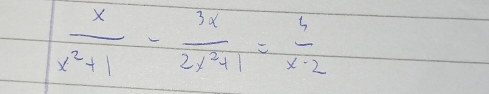 x/(x²+1) - 3x/(2x²+1) = 3/(x-2)